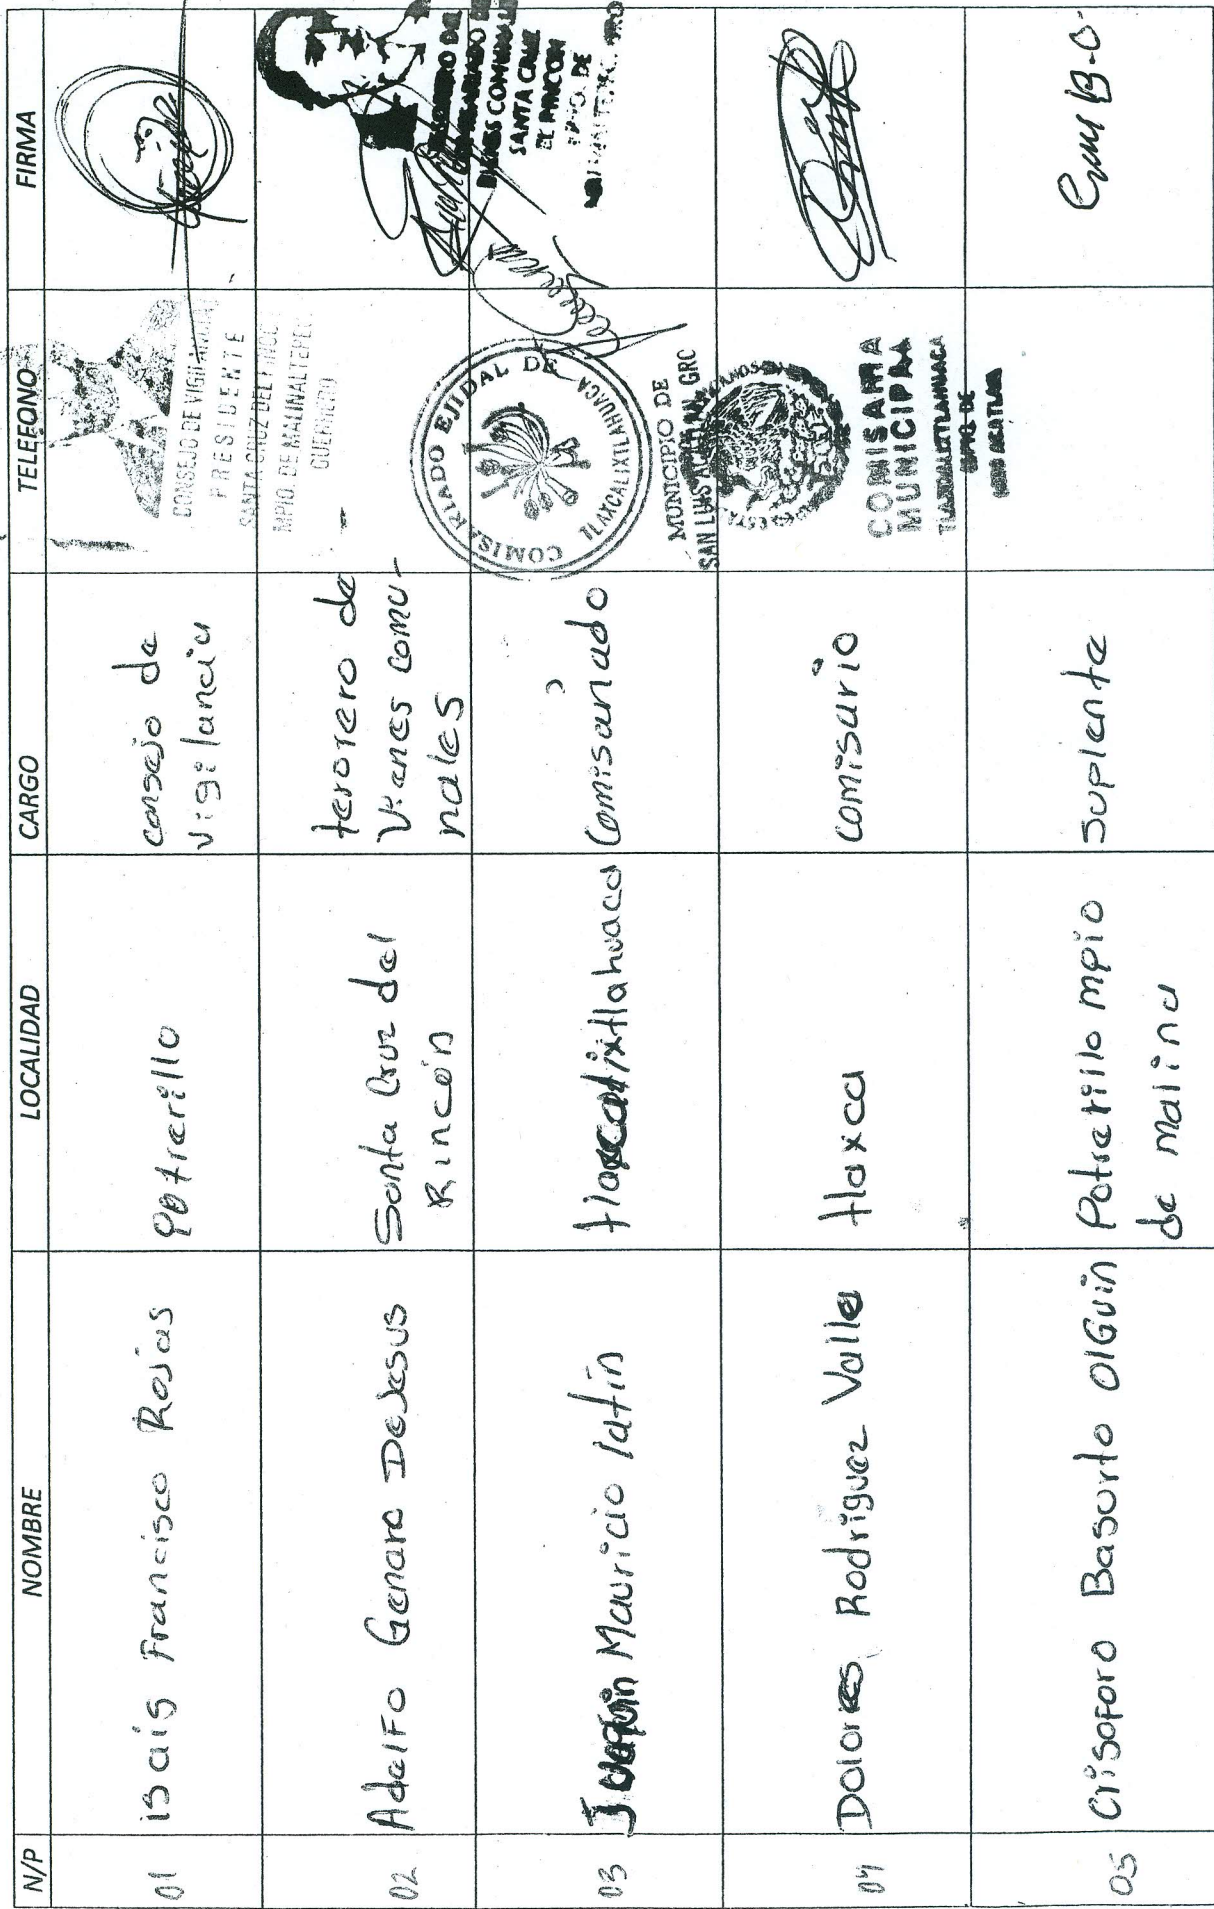 N/P NOMBRE LOCALIDAD CARGO TELEFONO FIRMA
01 isais Francisco Rojas Potrerillo consejo de
vigilancia
CONSEJO DE VIGILANCIA
PRESIDENTE
SANTA CRUZ DEL RINCON
MPIO. DE MALINALTEPEC
GUERRERO
02 Adelfo Genaro DeJesus Santa Cruz del
Rincón
terorero de
Vienes comu-
nales
BIENES COMUNALES
SANTA CRUZ
EL RINCON
MPIO. DE
03 Joaquin Mauricio latín tlaxcalixtlahuaca Comisariado
COMISARIADO EJIDAL DE
TLAXCALIXTLAHUACA
MUNICIPIO DE
SAN LUIS ACATLAN, GRO
04 Dolores Rodriguez Valle tlaxca comisario
COMISARIA
MUNICIPAL
TLAXCALIXTLAHUACA
MPIO. DE
05 Crisoforo Basurto OlGuin Potrerillo mpio
de malina
Suplente
B-O